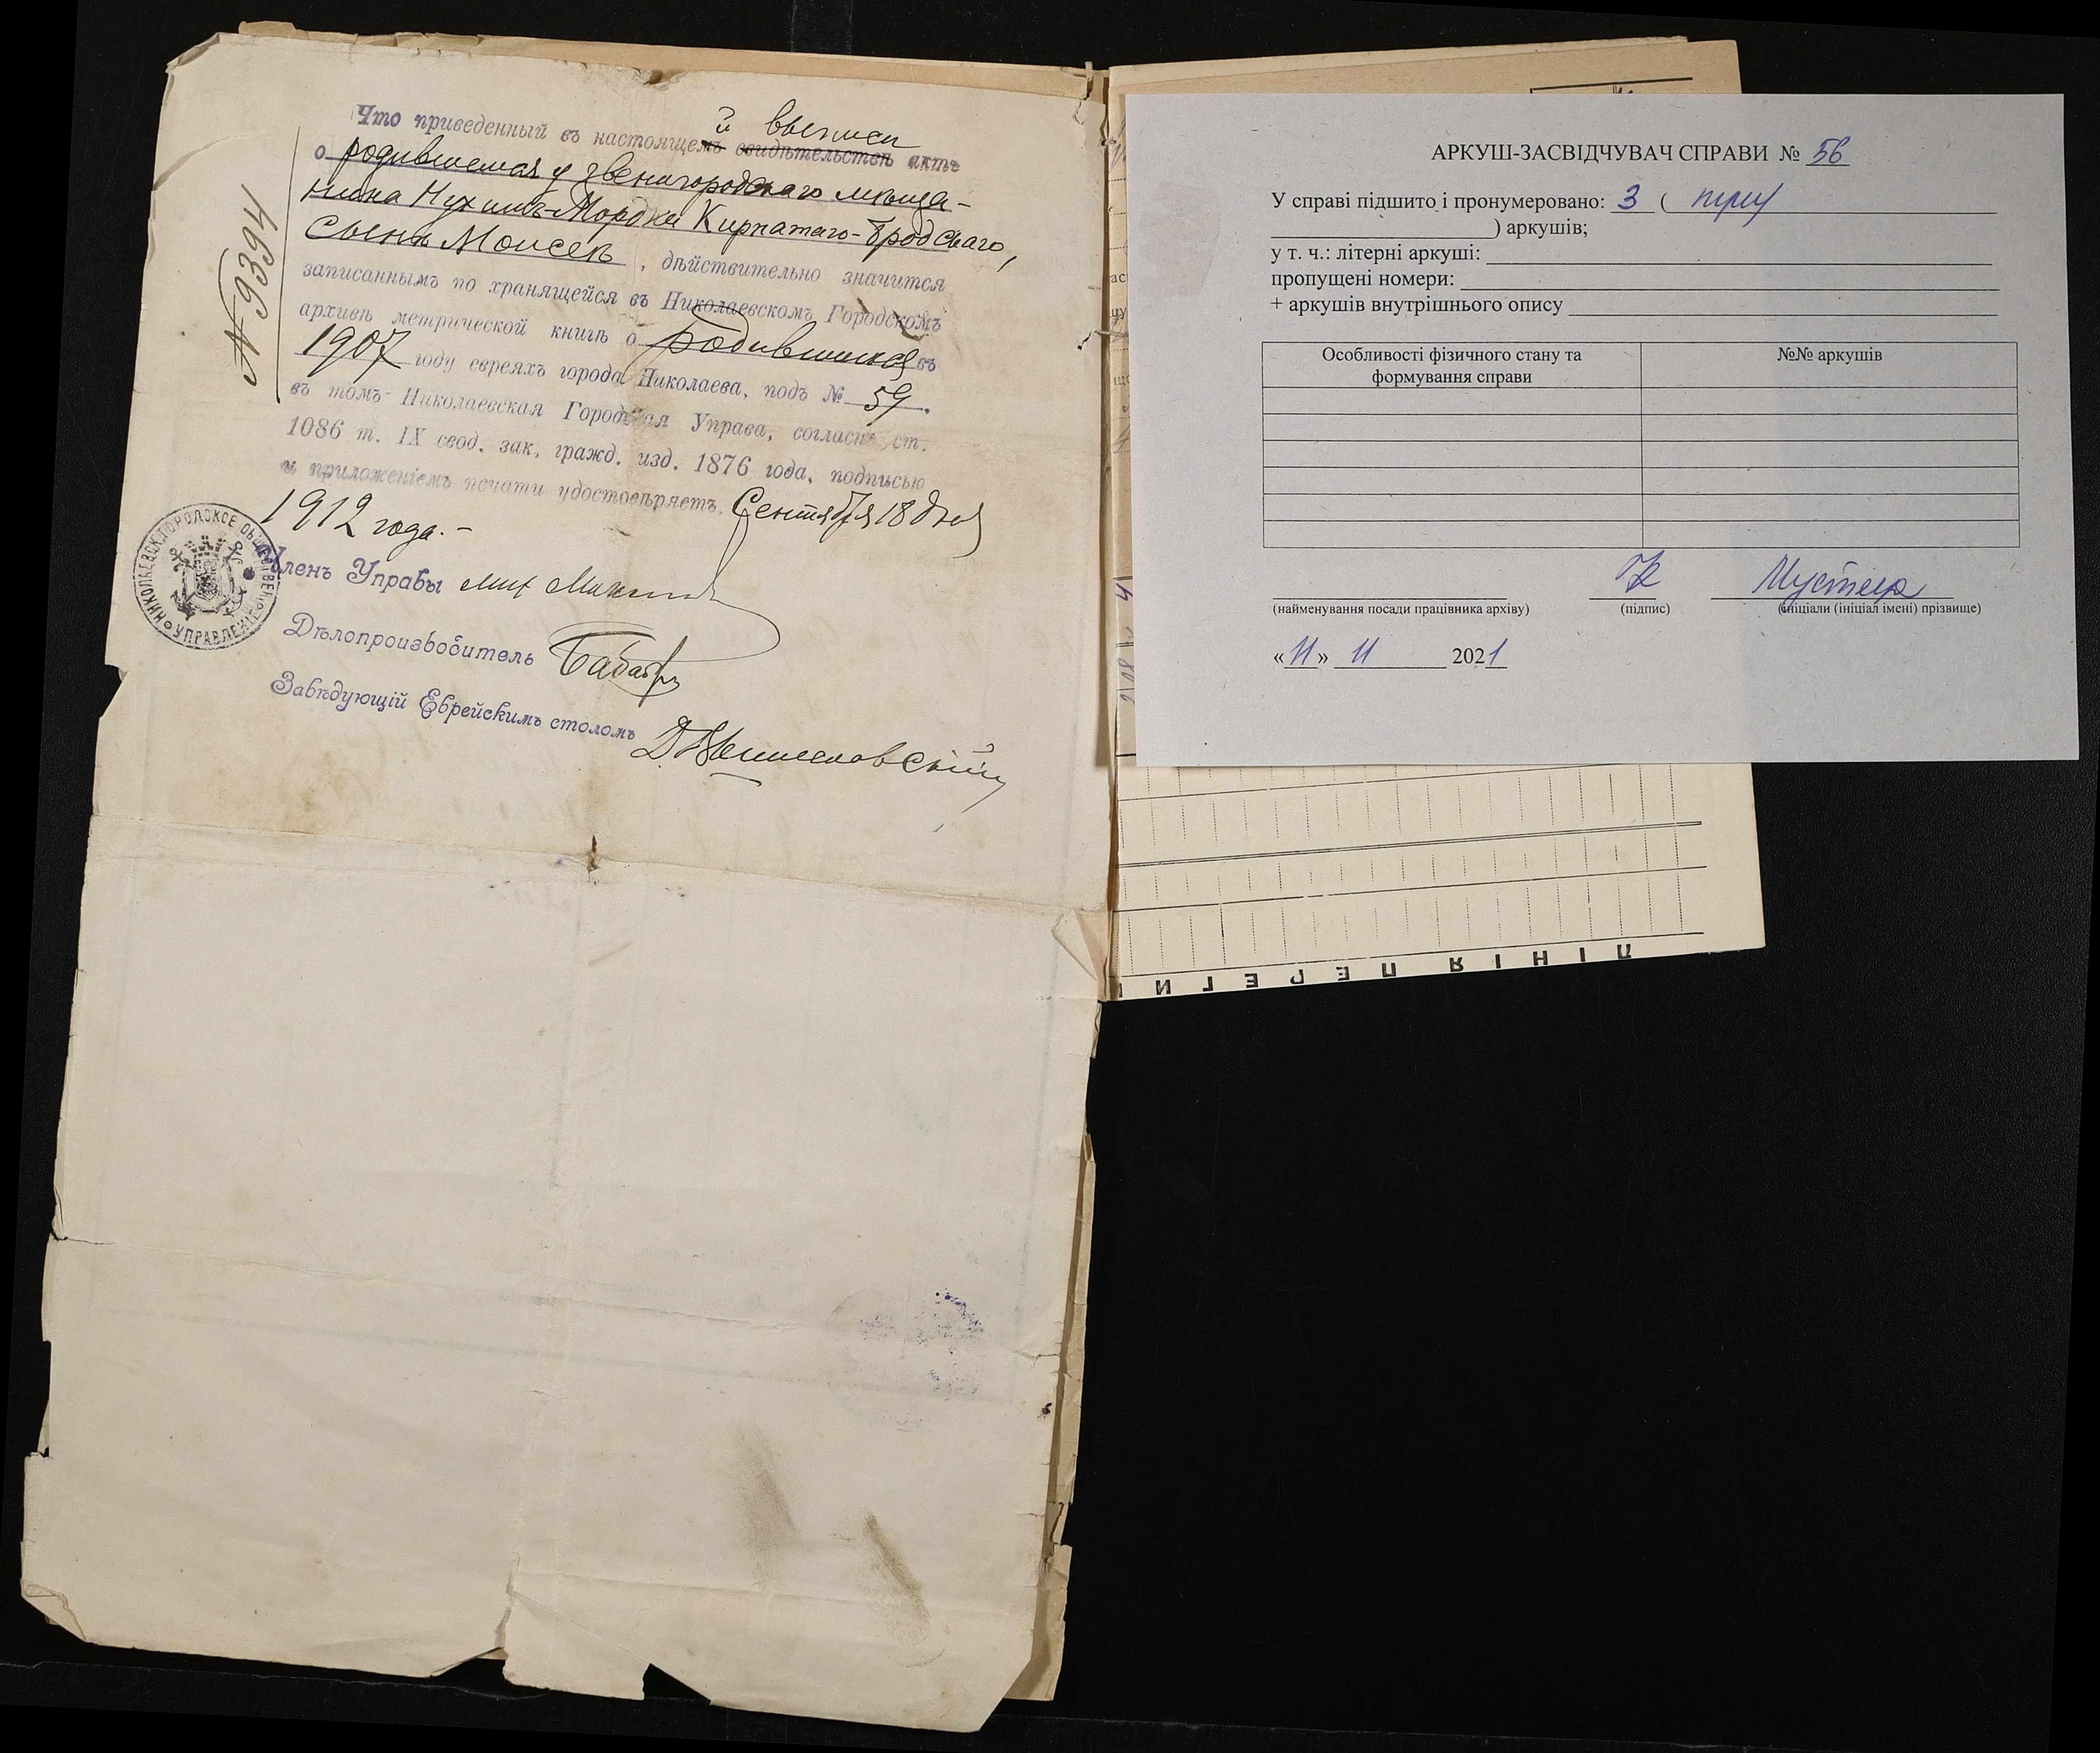 Что приведенный въ настоящемъ й свидѣтельствѣ выписи актъ
о родившемся у звенигородскаго мѣща-
нина Нухимъ-Мордки Кирпатаго-Бродскаго,
сынѣ Моисеѣ, дѣйствительно значится
записаннымъ по хранящейся въ Николаевскомъ Городскомъ
архивѣ метрической книгѣ о родившихся въ
1907 году евреяхъ города Николаева, подъ № 59.
въ томъ Николаевская Городская Управа, согласно ст.
1086 т. IX свод. зак. гражд. изд. 1876 года, подписью
и приложеніемъ печати удостовѣряетъ. Сентября 18 дня
1912 года.-
Членъ Управы
Дѣлопроизводитель
Завѣдующій Еврейскимъ столомъ
№ 9394
НИКОЛАЕВСК. ГОРОДСКОЕ ОБЩЕСТВЕН. УПРАВЛЕНІЕ
АРКУШ-ЗАСВІДЧУВАЧ СПРАВИ № 56
У справі підшито і пронумеровано: 3 ( три
) аркушів;
у т. ч.: літерні аркуші:
пропущені номери:
+ аркушів внутрішнього опису
Особливості фізичного стану та
формування справи
№№ аркушів
(найменування посади працівника архіву) (підпис) (ініціали (ініціал імені) прізвище)
«11» 11 2021
ЛІНІЯ ПЕРЕГИ